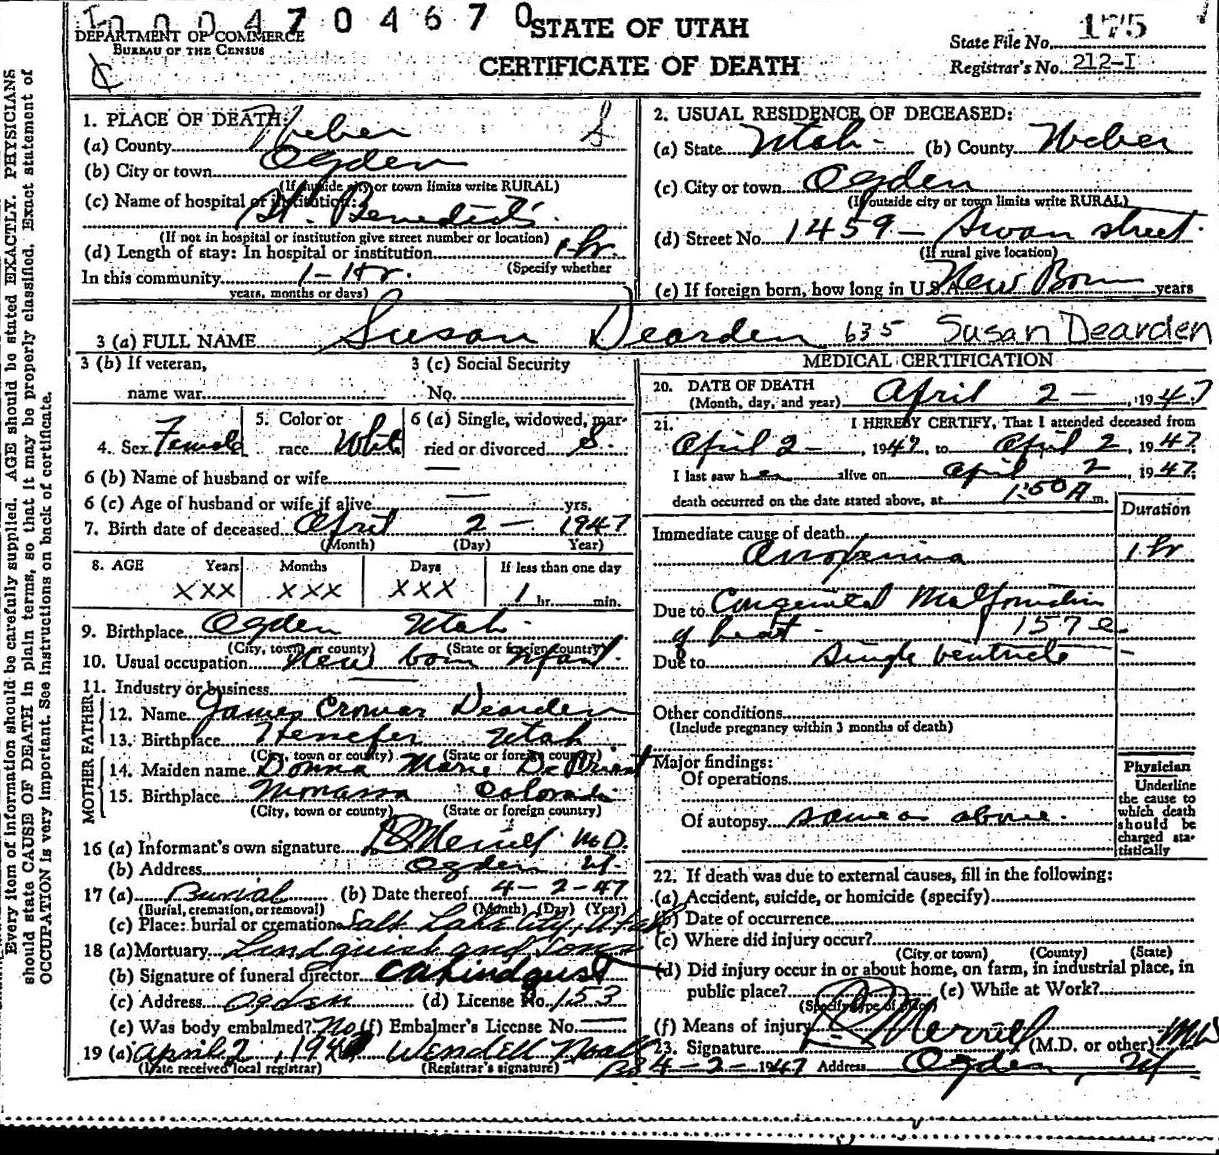 0004704670
STATE OF UTAH
DEPARTMENT OF COMMERCE
BUREAU OF THE CENSUS
CERTIFICATE OF DEATH
State File No. 175
Registrar's No. 212-I
Every item of information should be carefully supplied. AGE should be stated EXACTLY. PHYSICIANS
should state CAUSE OF DEATH in plain terms, so that it may be properly classified. Exact statement of
OCCUPATION is very important. See instructions on back of certificate.
1. PLACE OF DEATH:
(a) County Weber
(b) City or town Ogden
(If outside city or town limits write RURAL)
(c) Name of hospital or institution:
St. Benedict's
(If not in hospital or institution give street number or location)
(d) Length of stay: In hospital or institution 1-hr.
(Specify whether
In this community 1-Hr.
years, months or days)
2. USUAL RESIDENCE OF DECEASED:
(a) State Utah (b) County Weber
(c) City or town Ogden
(If outside city or town limits write RURAL)
(d) Street No. 1459 - Swan street.
(If rural give location)
(e) If foreign born, how long in U.S.A. New Born years
3 (a) FULL NAME Susan Dearden 635 Susan Dearden
3 (b) If veteran, name war
3 (c) Social Security No.
4. Sex Female
5. Color or race White
6 (a) Single, widowed, married or divorced S.
6 (b) Name of husband or wife
6 (c) Age of husband or wife if alive yrs.
7. Birth date of deceased April 2 - 1947
(Month) (Day) Year)
8. AGE Years Months Days If less than one day
XXX XXX XXX 1 hr. min.
9. Birthplace Ogden Utah.
(City, town or county) (State or foreign country)
10. Usual occupation New born infant.
11. Industry or business
FATHER
12. Name James Dearden
13. Birthplace Henefer Utah
(City, town or county) (State or foreign country)
MOTHER
14. Maiden name Donna Marie
15. Birthplace Colorado
(City, town or county) (State or foreign country)
16 (a) Informant's own signature Merrill M.D.
(b) Address Ogden Ut.
17 (a) Burial (b) Date thereof 4-2-47
(Burial, cremation, or removal) (Month) (Day) (Year)
(c) Place: burial or cremation Salt Lake City, Utah
18 (a) Mortuary Lindquist and Sons
(b) Signature of funeral director CA Lindquist
(c) Address Ogden (d) License No. 153
(e) Was body embalmed? No (f) Embalmer's License No.
19 (a) April 2, 1947 Wendell Noall
(Date received local registrar) (Registrar's signature)
MEDICAL CERTIFICATION
20. DATE OF DEATH
(Month, day, and year) April 2 -, 1947
21. I HEREBY CERTIFY, That I attended deceased from
April 2 - , 1947, to April 2, 1947.
I last saw her alive on April 2, 1947.
death occurred on the date stated above, at 1:50 A m.
Duration
Immediate cause of death
Anoxemia 1 hr
Due to Congenital Malformation
of heart. 157 e
Due to single ventricle
Other conditions
(Include pregnancy within 3 months of death)
Major findings:
Of operations
Of autopsy same as above.
Physician
Underline
the cause to
which death
should be
charged sta-
tistically
22. If death was due to external causes, fill in the following:
(a) Accident, suicide, or homicide (specify)
(b) Date of occurrence
(c) Where did injury occur?
(City or town) (County) (State)
(d) Did injury occur in or about home, on farm, in industrial place, in
public place? (e) While at Work?
(Specify type of place)
(f) Means of injury
23. Signature Merrill (M.D. or other) MD
4-2-1947 Address Ogden, Ut